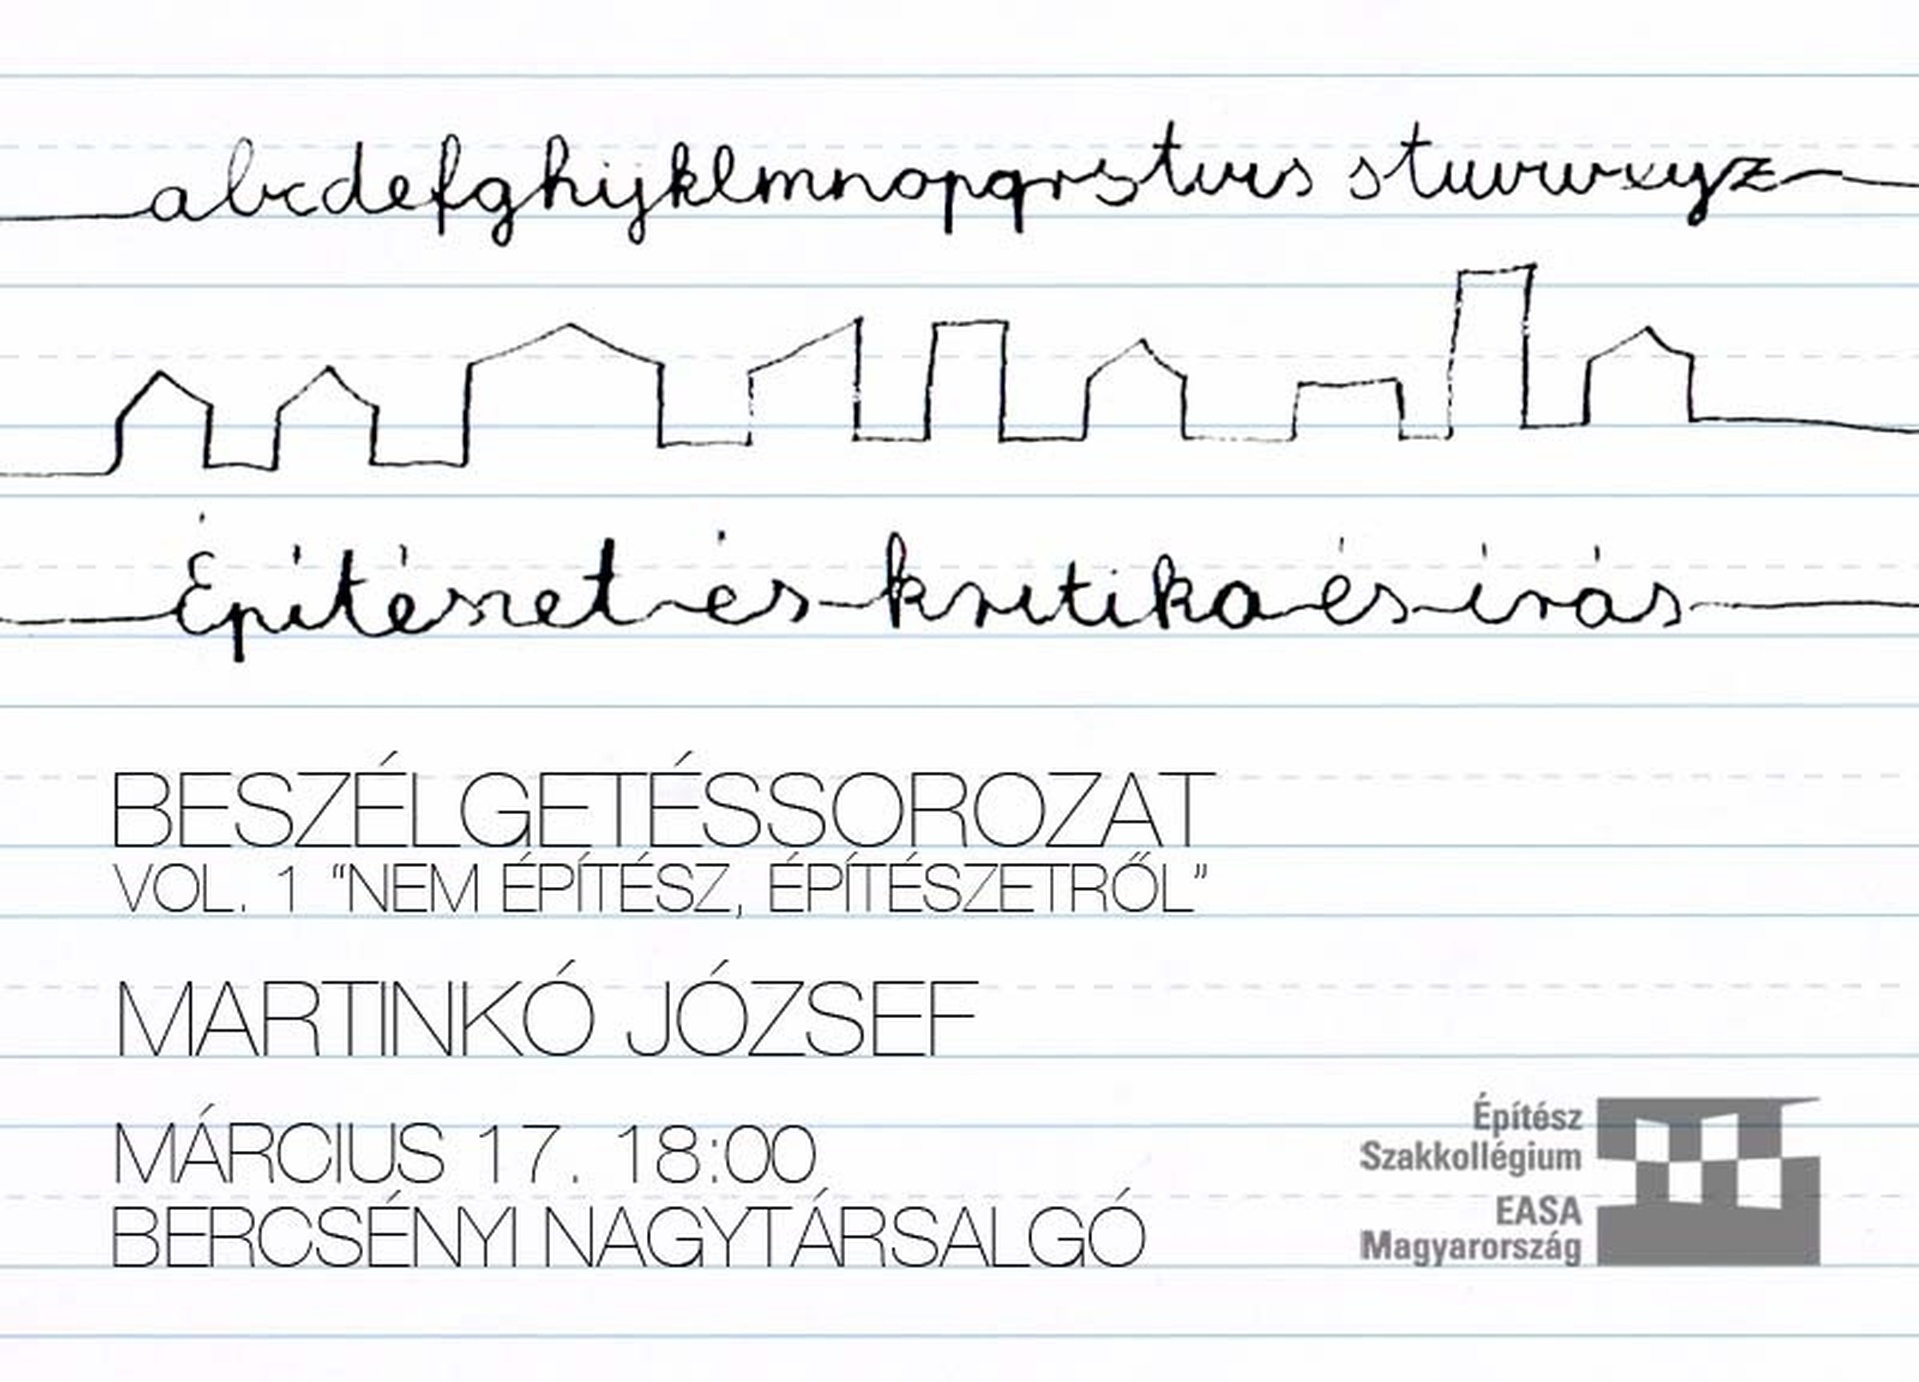 abcdefghijklmnopqrstuvs stuvwxyz
Építészet és kritika és írás
BESZÉLGETÉSSOROZAT
VOL. 1 "NEM ÉPÍTÉSZ, ÉPÍTÉSZETRŐL"
MARTINKÓ JÓZSEF
MÁRCIUS 17. 18:00
BERCSÉNYI NAGYTÁRSALGÓ
Építész
Szakkollégium
EASA
Magyarország